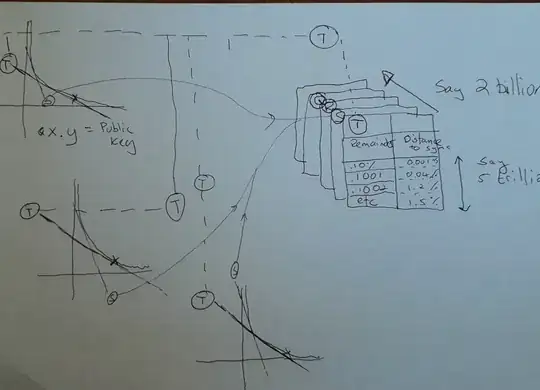 T
T
Say 2 billion
T
Remainds
Distance to sync
.10%
0.001%
.1001
0.04%
.1002
1.2%
etc
1.5%
Say
5 trilli
x.y = Public
Key
T
T
T
T